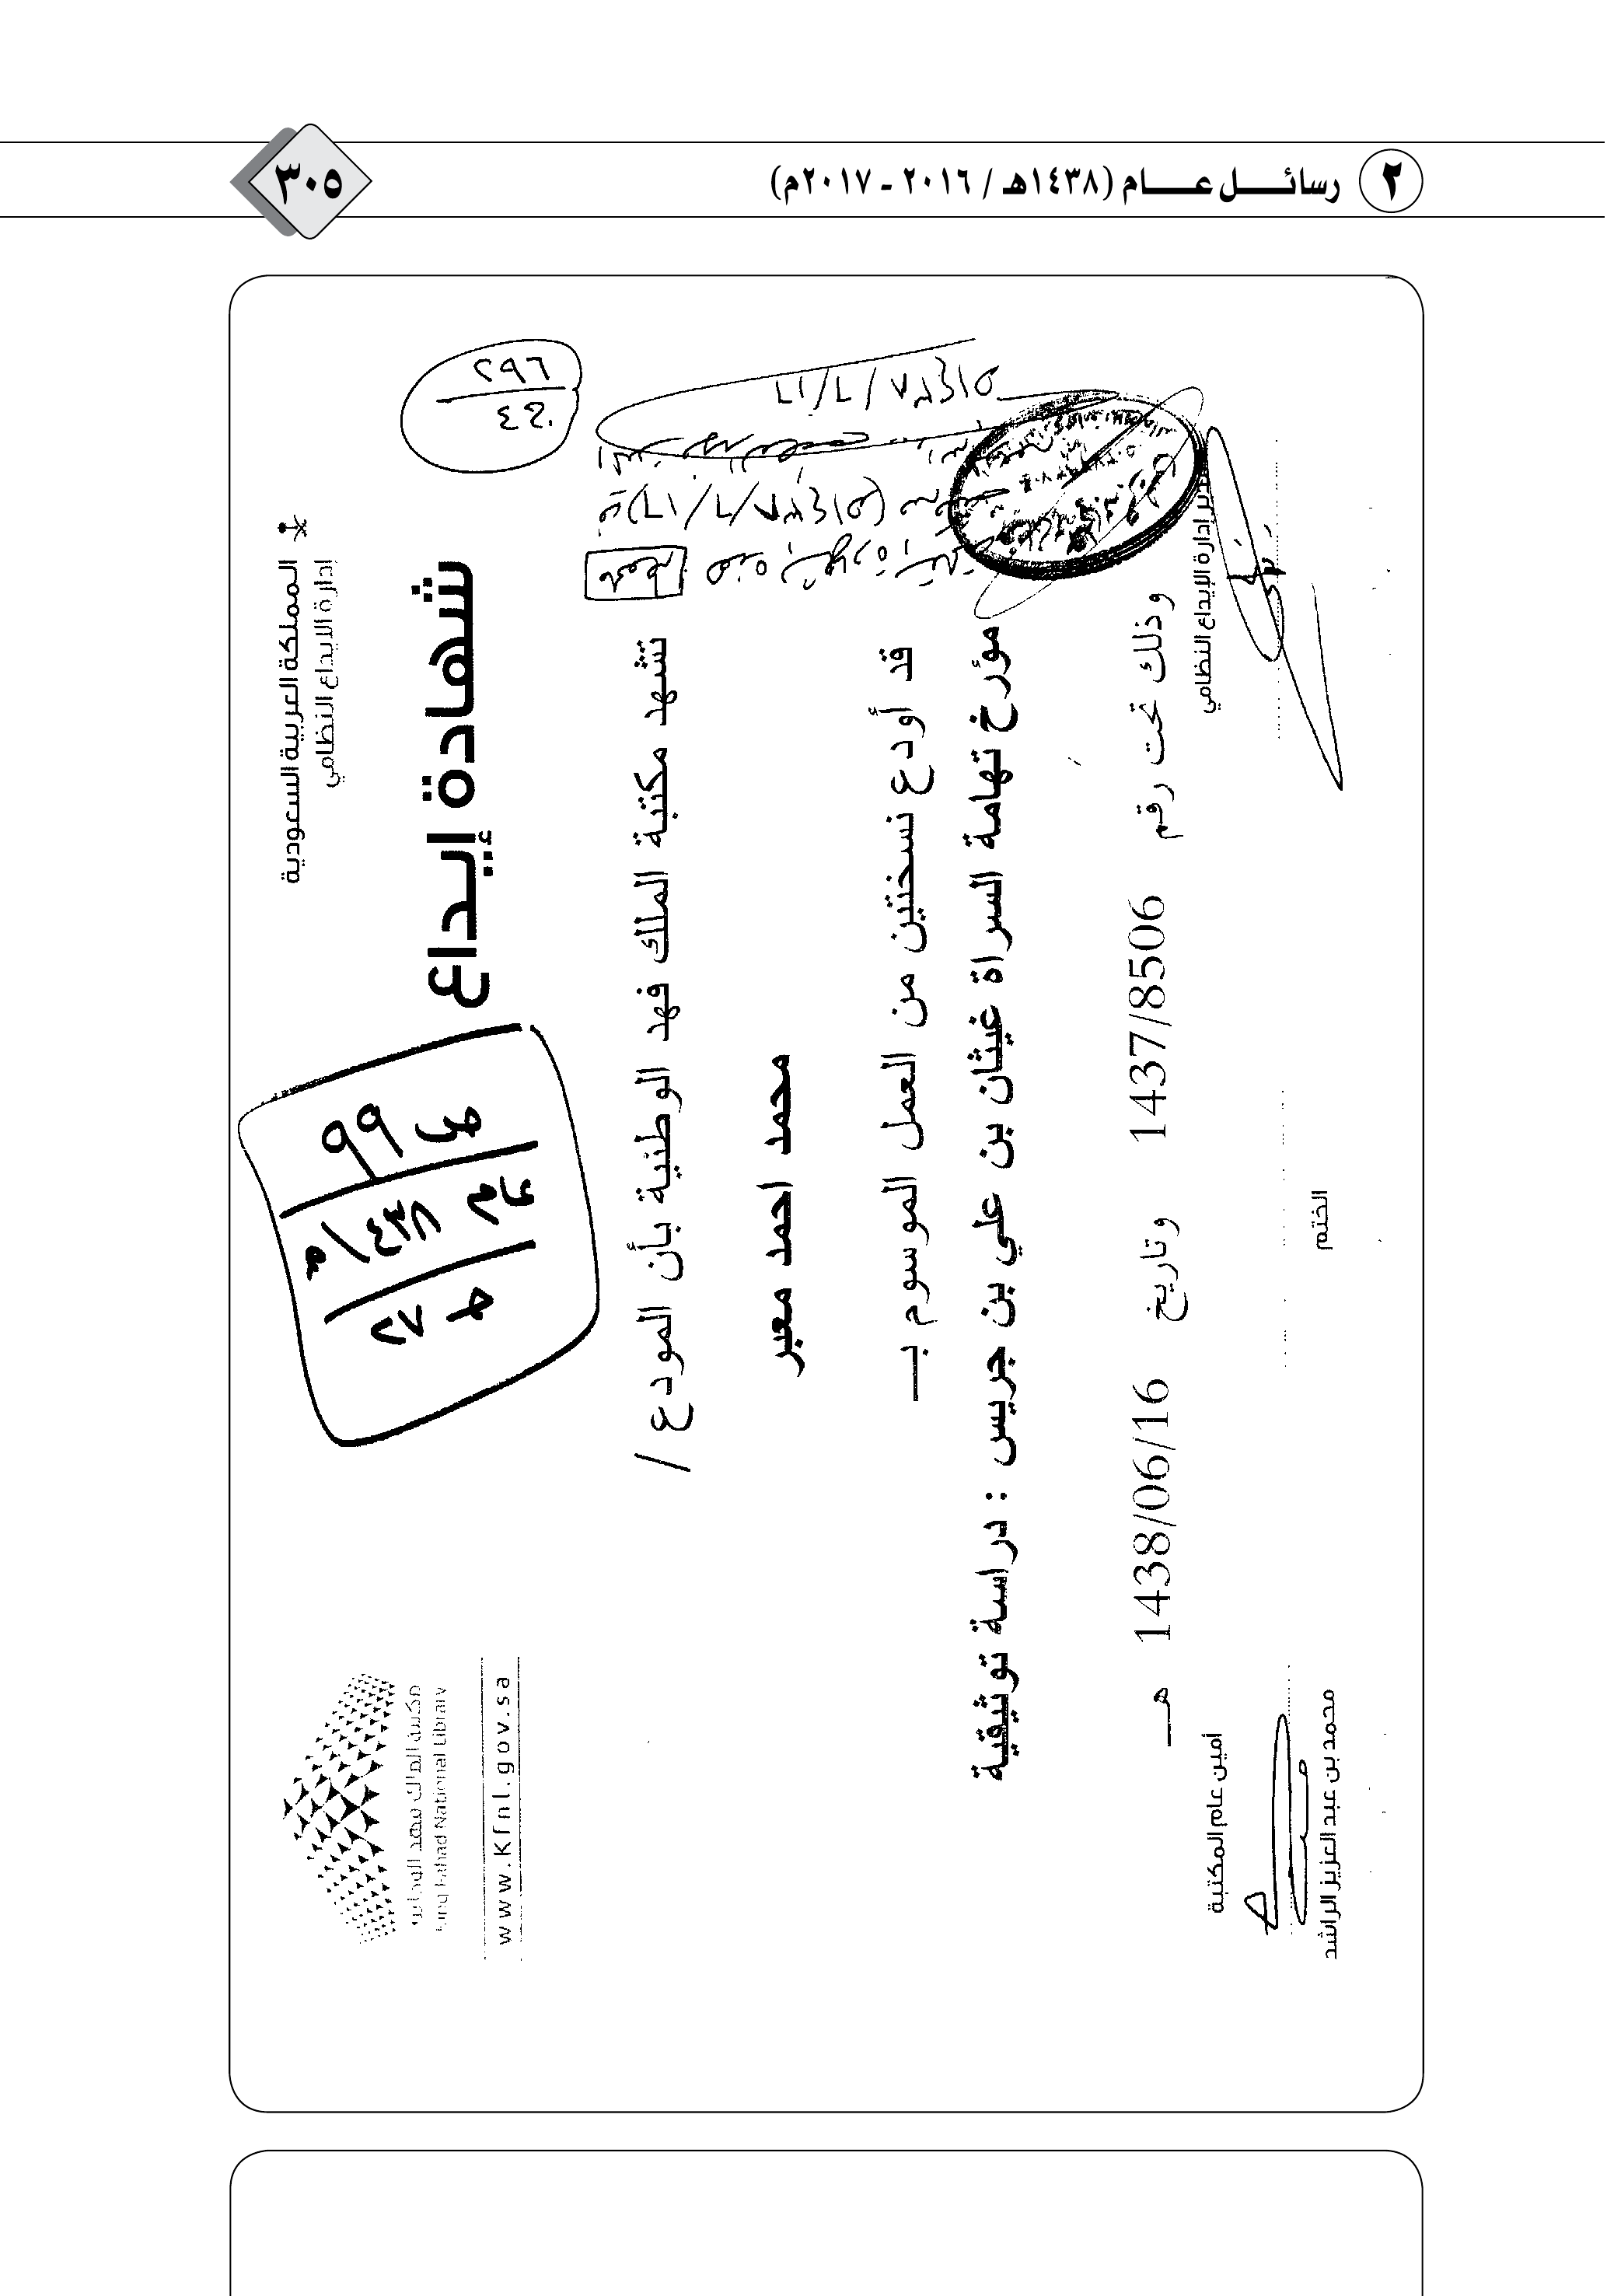 ٢ رسائل عام (١٤٣٨هـ / ٢٠١٦ - ٢٠١٧م)
٣٠٥
المملكة العربية السعودية
إدارة الإيداع النظامي
مكتبة الملك فهد الوطنية
King Fahad National Library
www.Kfnl.gov.sa
شهادة إيداع
٢٩٦
٩٩
تشهد مكتبة الملك فهد الوطنية بأن المودع /
محمد احمد معبر
قد أودع نسختين من العمل الموسوم بـ
مؤرخ تهامة السراة غيثان بن علي بن جريس : دراسة توثيقية
وذلك تحت رقم 1437/8506 وتاريخ 1438/06/16 هـ
مدير إدارة الإيداع النظامي
الختم
أمين عام المكتبة
محمد بن عبد العزيز الراشد